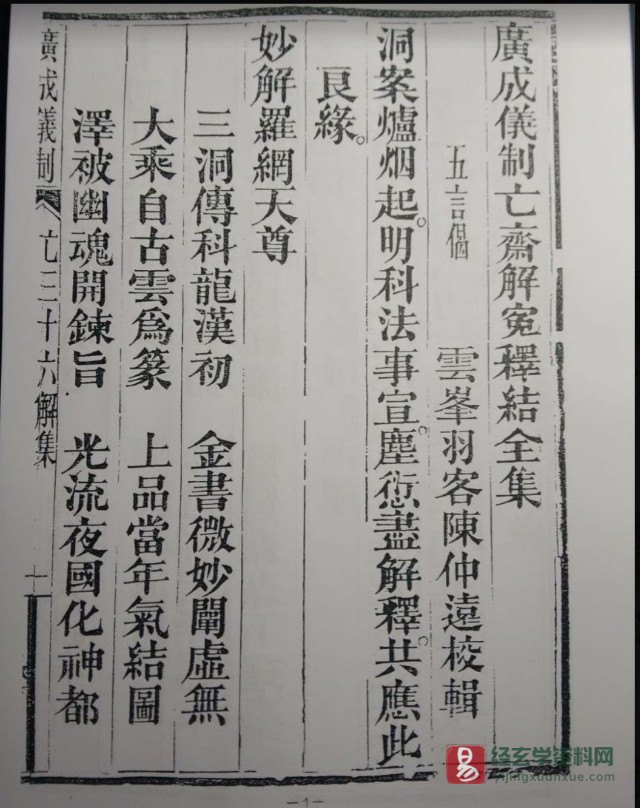 廣成儀制亡齋解冤釋結全集
五言偈
雲峯羽客陳仲遠校輯
洞案爐烟起。明科法事宣。塵愆盡解釋。共應此
良緣。
妙解羅網天尊
三洞傳科龍漢初 金書微妙闡虛無
大乘自古雲爲篆 上品當年氣結圖
澤被幽魂開鍊旨 光流夜國化神都
廣成儀制 亡三十六解集 一
易 经玄学资料网
yijingxudnxue.com
—1—